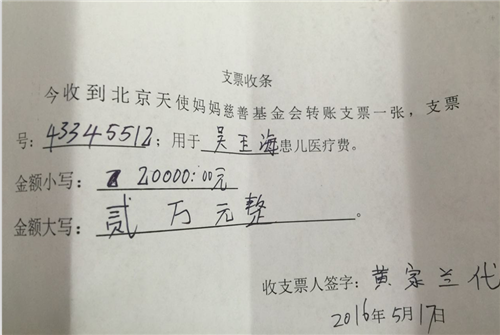 支票收条
今收到北京天使妈妈慈善基金会转账支票一张，支票
号：43345512；用于 吴玉海患儿医疗费。
金额小写： 20000:00元
金额大写： 贰 万 元 整 。
收支票人签字：黄家兰代
2016年5月17日